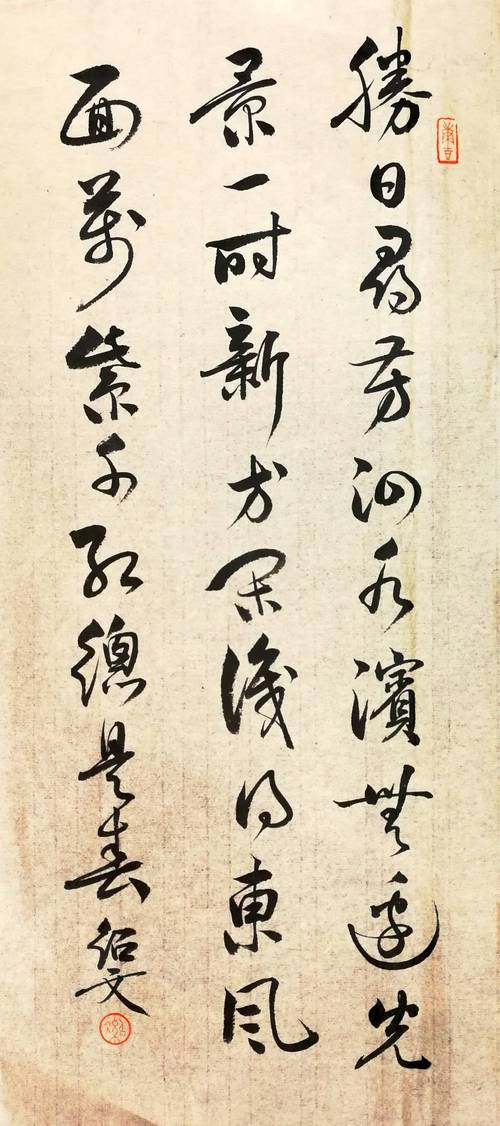 勝日尋芳泗水濱無邊光
景一時新等閑識得東風
面萬紫千紅總是春紹文